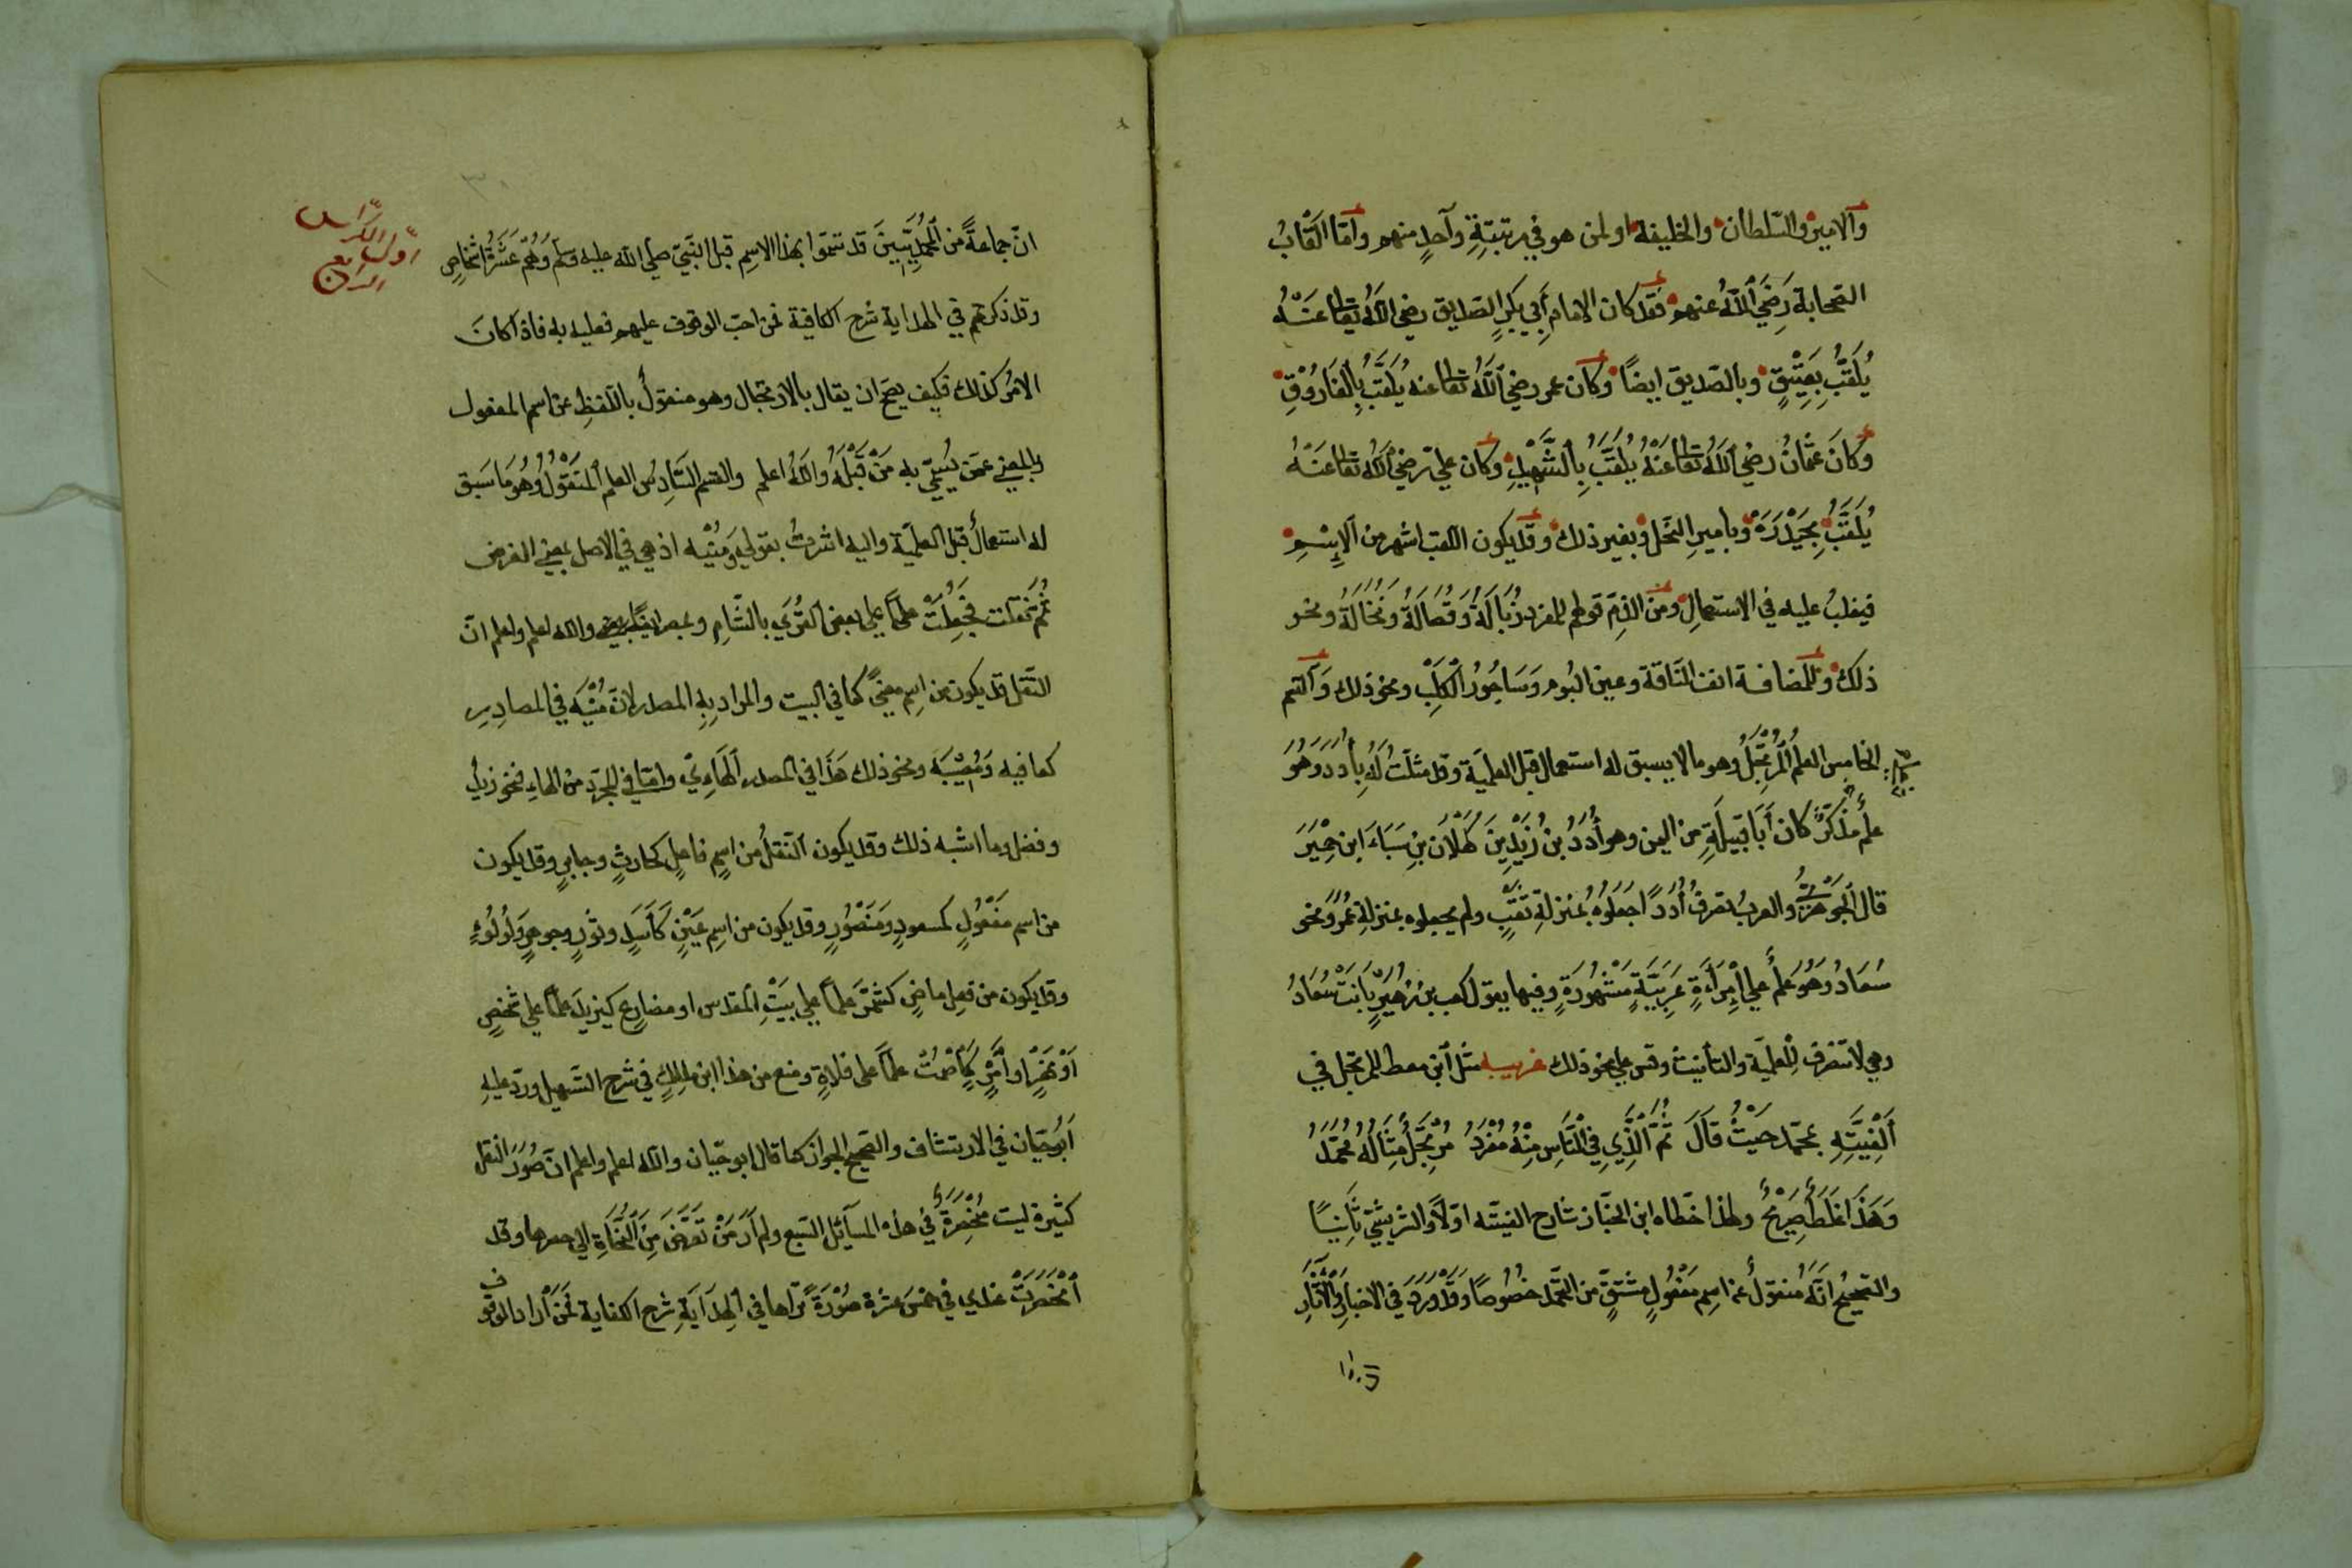 والامير والسّلطان والخليفة او لمن هو في مرتبَتِةِ وآحدٍ منهم وامّا القَابُ
الصّحابة رَضيَ اللّٰهُ عنهم فقد كان الامام أَبي بكرٍ الصّديق رضي اللّٰهُ تعالى عَنْهُ
يُلَقَّبُ بِعَتِيْقٍ وبالصّديق ايضًا وكان عمر رضي اللّٰهُ تعالى عنه يُلَقَّبُ بِالفَارُوْقِ
وَكانَ عثْمانُ رضي اللّٰهُ تعالى عَنْهُ يُلَقَّبُ بِالشَّهِيْدِ وكان عليّ رضي اللّٰهُ تعالى عَنْهُ
يُلَقَّبُ بِحَيْدَرَةَ وبأميرِ النّحل وبغير ذلك وقد يكون اللّقب اشهر من الإِسْمِ
فيغلبُ عليه في الاستعمالِ ومن الذمّ قولهم للمفرد زُبَالَةُ وَقُصَالَةُ وَنُخَالَةُ ونحو
ذلك وللمضافة انف النّاقة وعين البُوم وَسَاجُورُ الْكَلْبِ ونحو ذلك وَالقسم
الخامس العلم المُرْتَجَلُ وهو ما لا يسبق له استعمال قبل العلميّة وقد مثلتُ لَهُ بِأُدَدَ وَهُوَ
علمُ مذكّرٍ كان أَبَا قبيلَةٍ من اليمن وهو أُدَدُ بن زَيْدِ بنَ كَهْلَان بنِ سَبَاءَ ابن حِمْيَرَ
قال الْجَوْهَرِيُّ والعربُ تصرفُ أُدَدًا جَعَلُوْهُ بمنزلةِ ثُقَبٍ ولم يجعلوه بمنزلةِ عُمَرُ ونحو
سُعَادُ وَهُوَ عَلَمٌ علي اِمْرَأَةٍ عَرَبِيَّةٍ مَشْهُورَةٍ وفيها يقول كعب بن زُهَيْرٍ بَانَتْ سُعَادُ
وهي لا تنصرف للعلميّة والتأنيث وقس علي نحو ذلك غريبه مثّل ابن معط للمرتجل في
أَلْفِيَّتِهِ بمحمّد حَيْثُ قَالَ ثُمَّ الَّذِي فِي النَّاسِ مِنْهُ مُفْرَدُ مُرْتَجَلٌ مِثَالُهُ مُحَمَّدُ
وَهَذَا غَلَطٌ صَرِيْحٌ ولهذا خطّاه ابن الخبّاز شارح الفيّته اوّلاً والشريشيّ ثَانِيًا
والصّحيحُ انّهُ منقولُ عن اسم مَفْعُولٍ مشتقٍّ من الحَمد خُصُوصًا وَقَدْ وَرَدَ فِي الاخبارِ وَالْآثَارِ
انّ
اوّل الكرّاس
الرابع
انّ جماعةً من المحمّديّينَ قد تسمّوا بهذا الاسم قبل النّبيّ صلّي اللّٰه عليه وسلّم وَهُمْ عَشَرَةُ اشخاصٍ
وقد ذكرتهم في الهداية شرح الكافية فمن احبّ الوقوف عليهم فعليه به فاذا كانَ
الامرُ كذلك فكيف يصحّ ان يقال بالارتجال وهو منقولُ باللّفظِ عن اسم المفعول
والمعني عمّن يُسَمّي به مَنْ قَبْلَهُ واللّٰهُ اعلم والقسم السَّادِسُ العلم المَنْقُولُ وَهُوَ مَا سَبَق
له استعمالُ قبل العلميّة واليه اشرتُ بقولي وَمُنْيَه اذ هي في الاصل بمعني الغرض
ثُمَّ نقلت فجُعِلَتْ علماً علي بعض القُرَي بالشّامِ وبمصر ايضًا واللّٰه اعلم واعلم انّ
النّقل قد يكون من اسِم معنيً كما في البيت والمراد بِهِ المصدر لانّ مُنْيَه في المصادِرِ
كعافيه وَمُصِيْبَه ونحو ذلك هَذَا في المصدر الهَاوِيّ وامّا في المجرّد من الهاءِ فنحو زيدٍ
وفضل وما اشبه ذلك وقد يكون النّقلُ من اسمِ فاعلٍ كحارثٍ وجابرٍ وقد يكون
من اسم مَفْعُولٍ كمسعودٍ وَمَنْصُورٍ وقد يكون من اسِم عَيْنٍ كَأَسَدٍ وثَوْرٍ وجوهرٍ ولُولُوءٍ
وقد يكون من فعلِ ماضٍ كشمّرَ علماً علي بَيْتِ المقدس او مضارعٍ كيزيدَ علماً علي شخصٍ
أَوْ او أَمْرٍ كَإِصْمِتْ علماً على فلاةٍ ومنع من هذا ابن مالكٍ في شرح التّسهيل وردّ عليهِ
أَبُو حَيّان في الارتشاف والصّحيح الجواز كما قال ابو حيّان واللّٰه اعلم واعلم انّ صُوَرَ النّقل
كثيرة ليست مُنْحَصِرَةً في هذه المسآئل السّبع ولم أَرَ مَنْ تَعَرَّضَ مِنَ النُّحَاةِ الي حصرها وقد
انْحَصَرَتْ عندي في خمسَ عشرة صُوْرَةً قرّرتها في الهِدَايَةِ شرح الكفاية لِمَنْ أَرادَ الوقوف